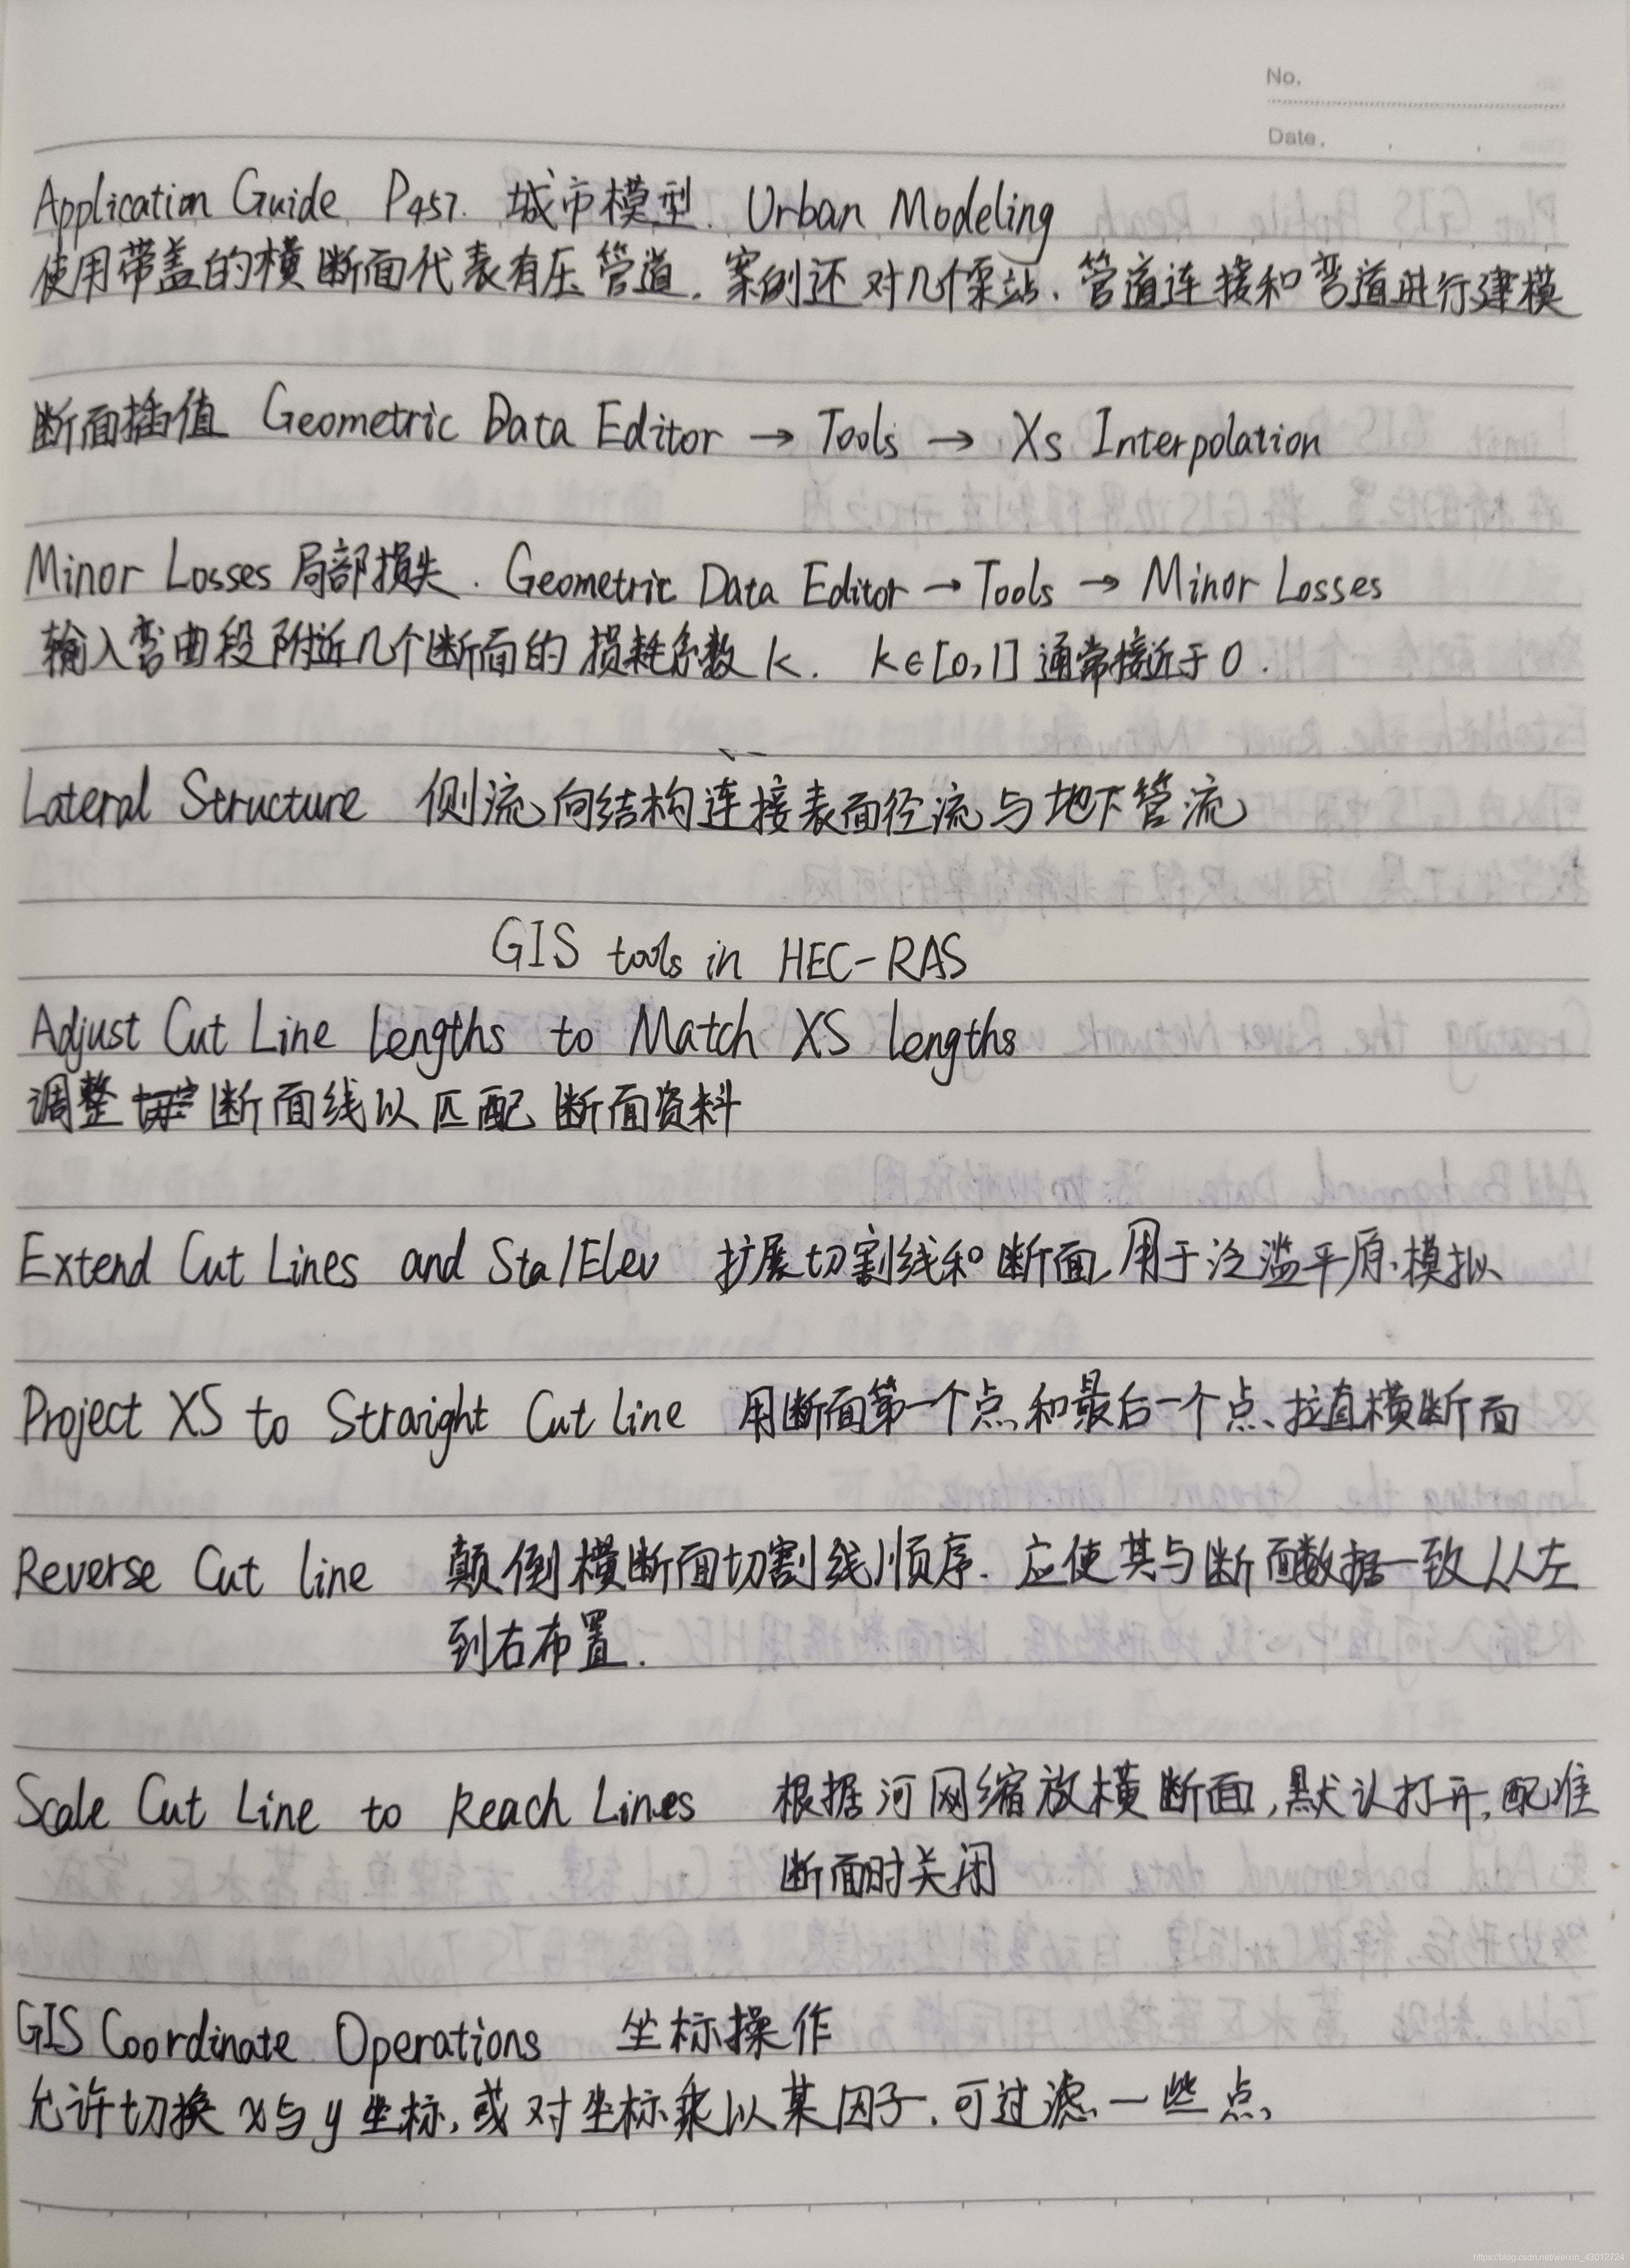 No.
Date.
Application Guide P457. 城市模型. Urban Modeling
使用带盖的横断面代表有压管道. 案例还对几个泵站、管道连接和弯道进行建模
断面插值 Geometric Data Editor → Tools → XS Interpolation
Minor Losses 局部损失. Geometric Data Editor → Tools → Minor Losses
输入弯曲段附近几个断面的损耗系数 k. k∈[0,1] 通常接近于0.
Lateral Structure 侧流向结构连接表面径流与地下管流
GIS tools in HEC-RAS
Adjust Cut Line Lengths to Match XS Lengths
调整断面线以匹配断面资料
Extend Cut Lines and Sta/Elev 扩展切割线和断面,用于泛滥平原模拟
Project XS to Straight Cut Line 用断面第一个点和最后一个点、拉直横断面
Reverse Cut line 颠倒横断面切割线顺序. 应使其与断面数据一致从左
到右布置.
Scale Cut Line to Reach Lines 根据河网缩放横断面,默认打开,配准
断面时关闭
GIS Coordinate Operations 坐标操作
允许切换 x与y坐标,或对坐标乘以某因子.可过滤一些点
https://blog.csdn.net/weixin_43012724